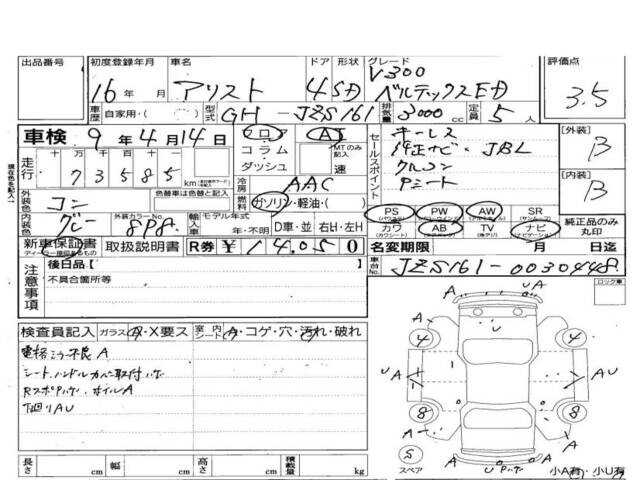 出品番号 初度登録年月 車名 ドア 形状 グレード 評価点
16年 月 アリスト 4 SD V300 ベルテックスED 3.5
車歴 自家用・( ) 型式 GH-JZS161 排気量 3000cc 定員 5人
車検 9年4月14日 フロア コラム ダッシュ AT MTのみ記入 速
走行 十 万 千 百 十 73585 km
セールスポイント キーレス
純正ナビ・JBL
クルコン
Pシート
[外装] B
[内装] B
冷房 AAC
外装色 コン 色替車は色替と記入
燃料 ガソリン・軽油・( )
内装色 グレー 外装カラーNo. 8P8 輸入車 モデル年式 年・不明 D車・並 右H・左H
PS PW AW SR (サンルーフ)
カワ (カワシート) AB TV (地デジ) ナビ (ナビゲーション)
純正品のみ丸印
新車保証書 取扱説明書 R券 ¥14,050 名変期限 月 日迄
車台No. JZS161-0030448
注意事項 後日品[ ]
不具合箇所等
ロック車
検査員記入 ガラス A・X要ス 室内シート A・コゲ・穴・汚れ・破れ
電格ミラー不良 A
シート、ハンドルカバー取付ハケ
下回りAU
U A
A A
4 4
U A A U
8 8
A A
S スペア
A U A
小A有・小U有
長さ cm 幅 cm 高さ cm 積載量 kg
現在色を記入